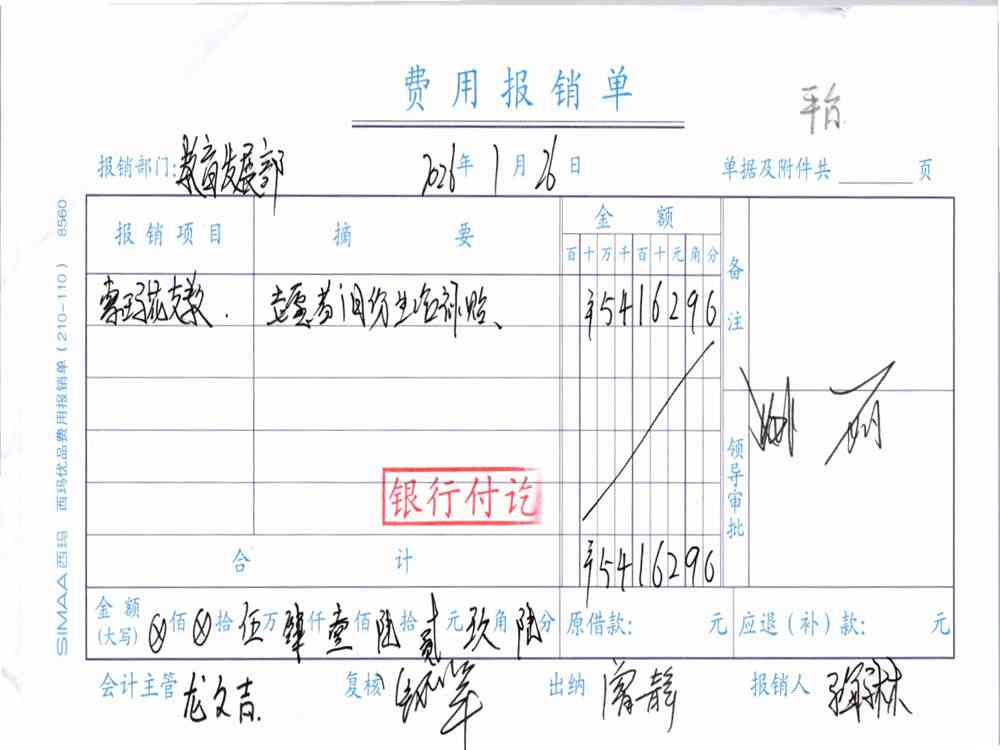 费用报销单
平台
报销部门: 教育发展部 2026年1月26日 单据及附件共 页
报销项目 摘要 金额 备注
百十万千百十元角分
索玛花支教. 生活补贴、 ¥5416296
银行付讫
领导审批
合计 ¥5416296
金额(大写) ⊗佰⊗拾伍万肆仟壹佰陆拾贰元玖角陆分 原借款: 元 应退(补)款: 元
会计主管 龙文吉 复核 出纳 静 报销人
SIMAA西玛 西玛优品费用报销单(210-110) 8560